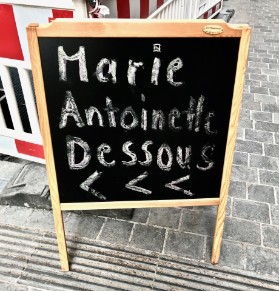 Marie
Antoinette
Dessous
< < <